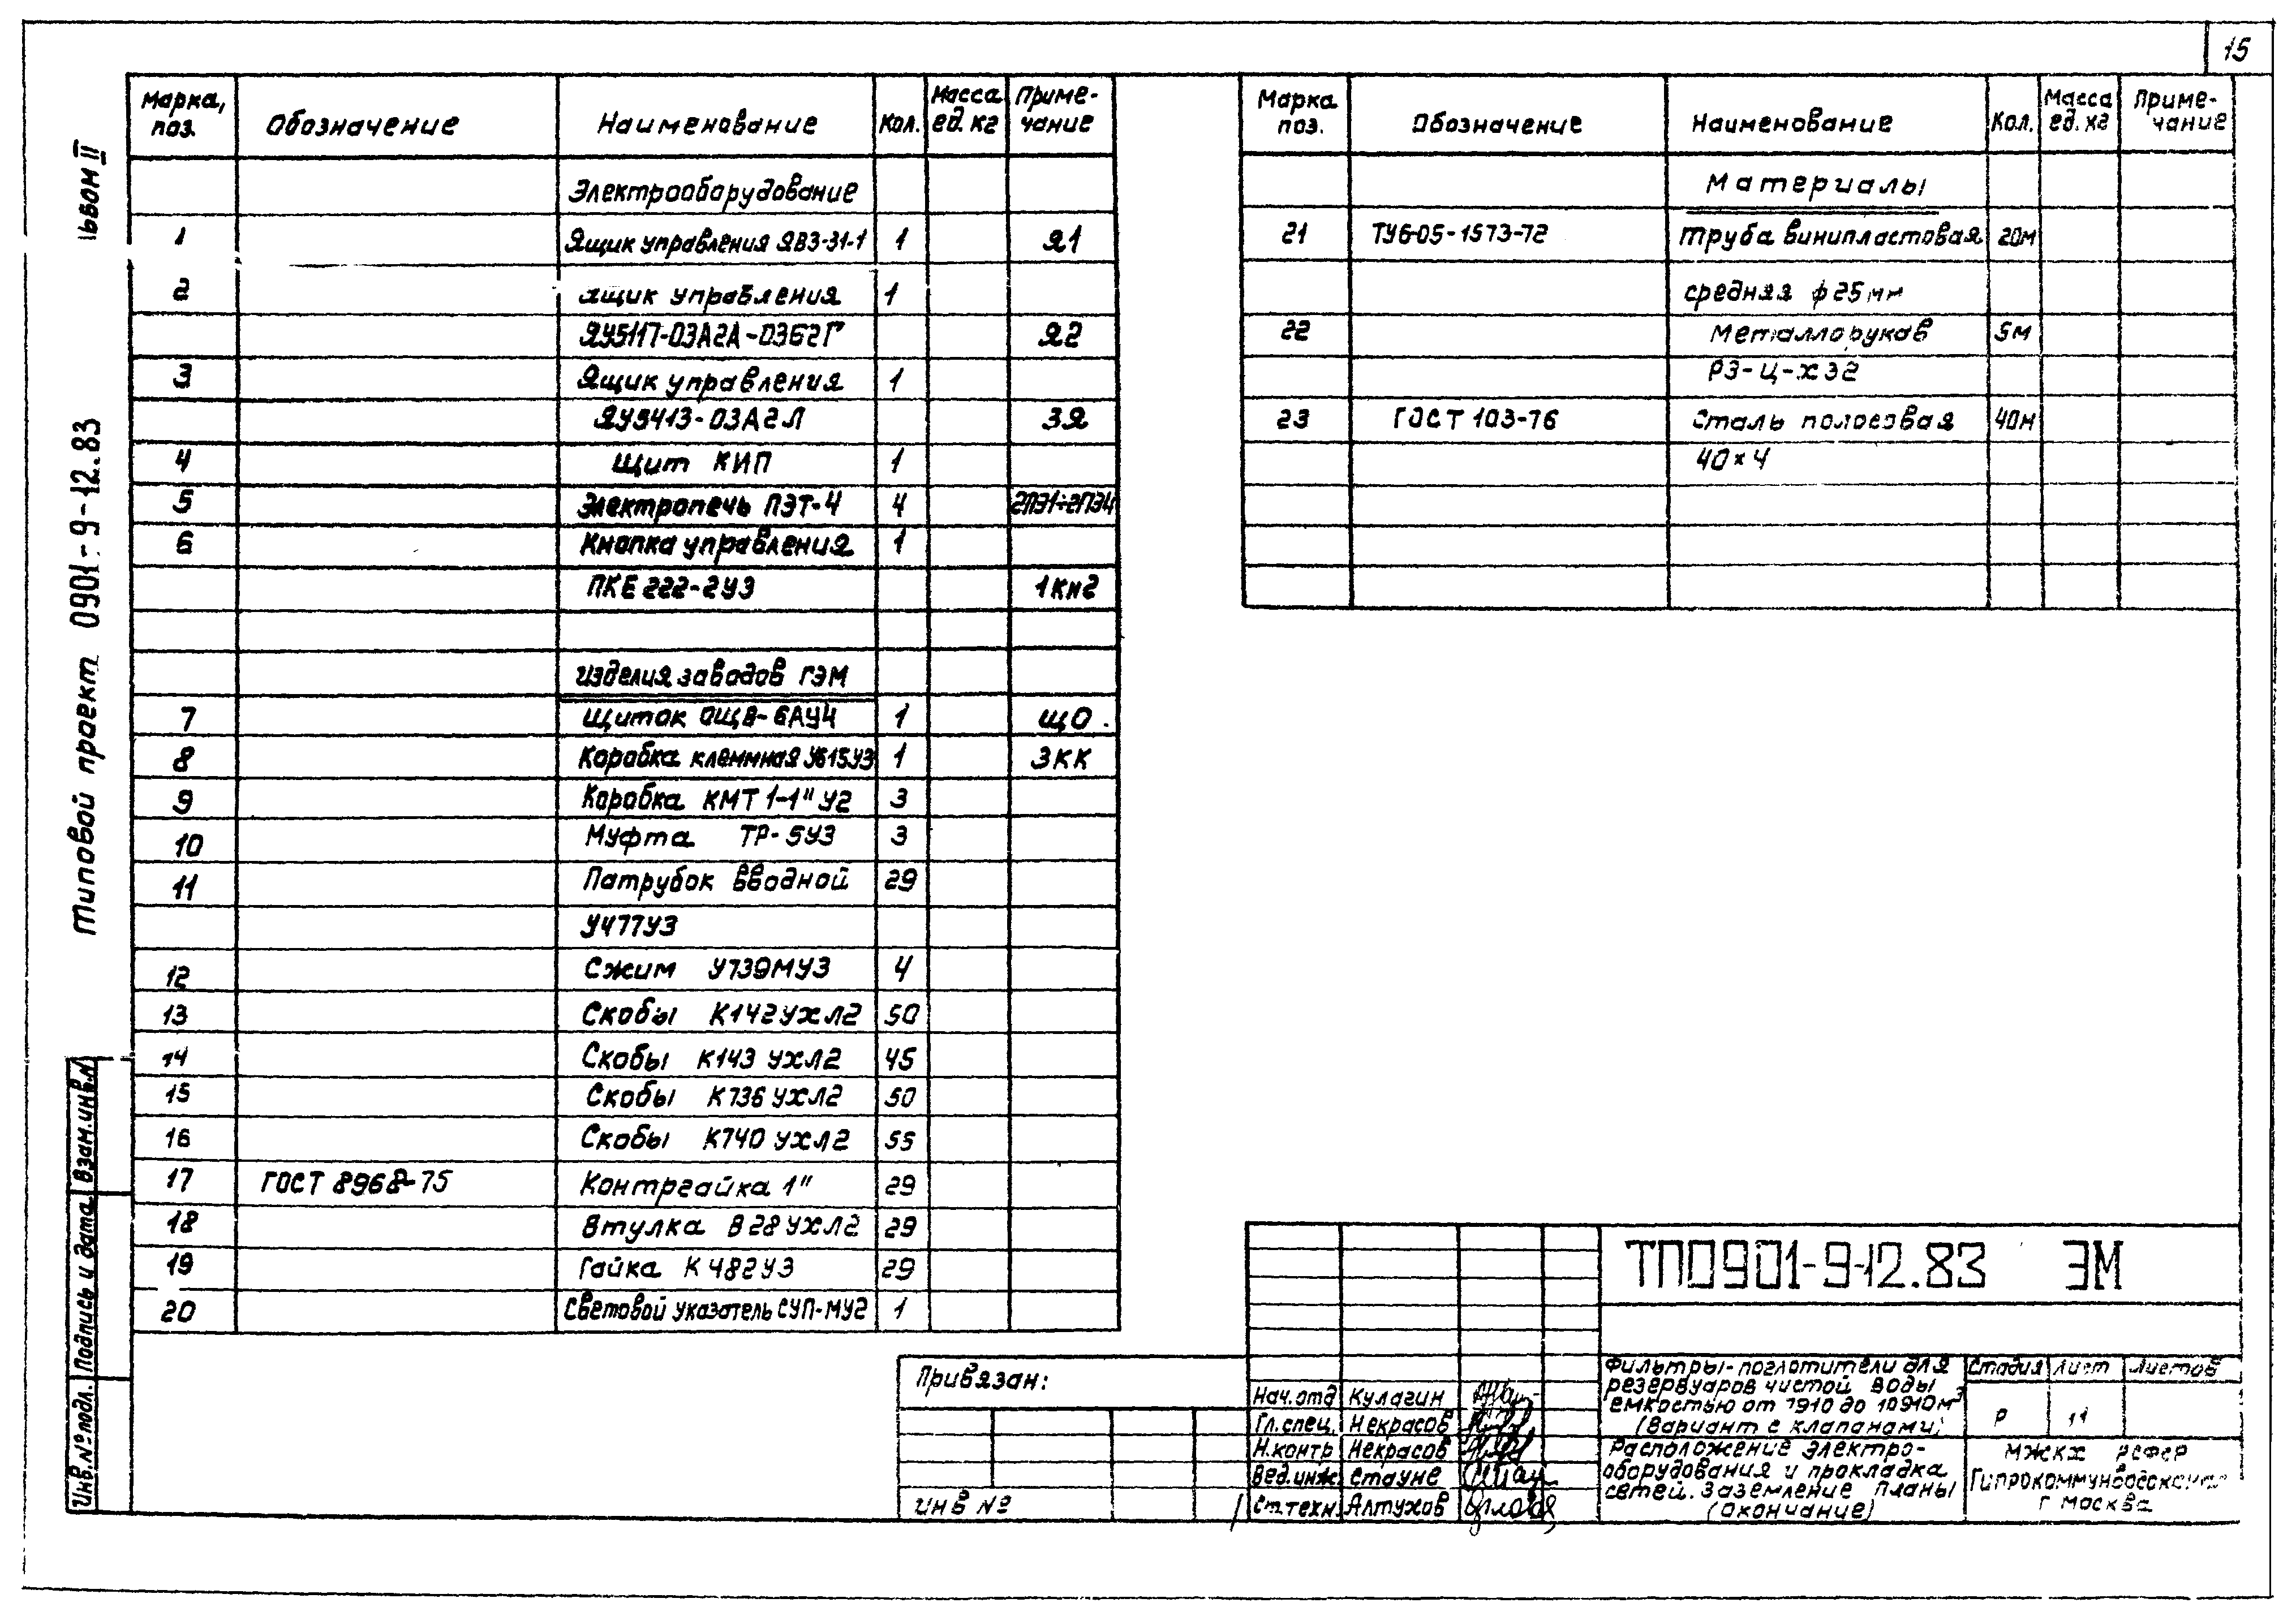 15
Альбом II
Типовой проект 0901-9-12.83
Взам.инв.№
Подпись и дата
Инв.№подл.
Марка, поз. Обозначение Наименование Кол. Масса ед. кг Примечание
Электрооборудование
1 Ящик управления ЯВЗ-31-1 1 Я1
2 Ящик управления 1
ЯУ5117-03А2А-03Б2Г Я2
3 Ящик управления 1
ЯУ5413-03А2Л 3Я
4 Щит КИП 1
5 Электропечь ПЭТ-4 4 2ПЭ1÷2ПЭ4
6 Кнопка управления 1
ПКЕ 222-2У3 1Кн2
Изделия заводов ГЭМ
7 Щиток ОЩВ-6АУ4 1 ЩО.
8 Коробка клеммная У615У3 1 3КК
9 Коробка КМТ 1-1" У2 3
10 Муфта ТР-5У3 3
11 Патрубок вводной 29
У477У3
12 Сжим У739МУ3 4
13 Скобы К142УХЛ2 50
14 Скобы К143 УХЛ2 45
15 Скобы К736 УХЛ2 50
16 Скобы К740 УХЛ2 55
17 ГОСТ 8968-75 Контргайка 1" 29
18 Втулка В28УХЛ2 29
19 Гайка К482У3 29
20 Световой указатель СУП-МУ2 1
Марка поз. Обозначение Наименование Кол. Масса ед. кг Примечание
Материалы
21 ТУ6-05-1573-72 Труба винипластовая 20м
средняя ф25мм
22 Металлорукав 5м
РЗ-Ц-Х32
23 ГОСТ 103-76 Сталь полосовая 40м
40×4
Привязан:
ИНВ №
ТП0901-9-12.83 ЭМ
Нач.отд Кулагин
Гл.спец. Некрасов
Н.контр Некрасов
Вед.инж Стауне
Ст.техн. Алтухов
Фильтры-поглотители для
резервуаров чистой воды
емкостью от 7910 до 10910м³
(Вариант с клапанами)
Расположение электро-
оборудования и прокладка
сетей. Заземление планы
(окончание)
Стадия Лист Листов
Р 11
МЖКХ РСФСР
Гипрокоммунводоканал
г Москва